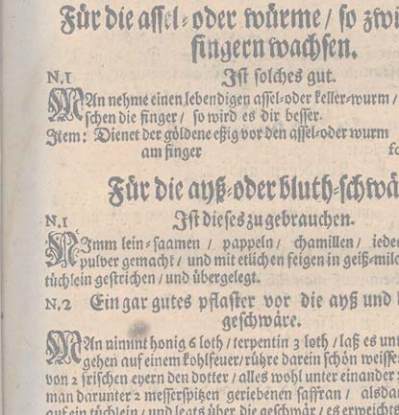 Für die assel- oder würme / so zwi
fingern wachsen.
N.1 Ist solches gut.
MAn nehme einen lebendigen assel- oder keller-wurm /
schen die finger / so wird es dir besser.
Item: Dienet der göldene eßig vor den assel- oder wurm
am finger
Für die ayß- oder bluth-schwä
N.1 Ist dieses zu gebrauchen.
NImm lein-saamen / pappeln / chamillen / iede
pulver gemacht / und mit etlichen feigen in geiß-milc
tüchlein gestrichen / und übergelegt.
N.2 Ein gar gutes pflaster vor die ayß und
geschwäre.
MAn nimmt honig 6 loth / terpentin 3 loth / laß es unt
gehen auf einem kohlfeuer / rühre darein schön weisse
von 2 frischen eyern den dotter / alles wohl unter einander
man darunter 2 messerspitzen geriebenen saffran / alsda
auf ein tüchlein / und legts über die geschwär / es erweichet